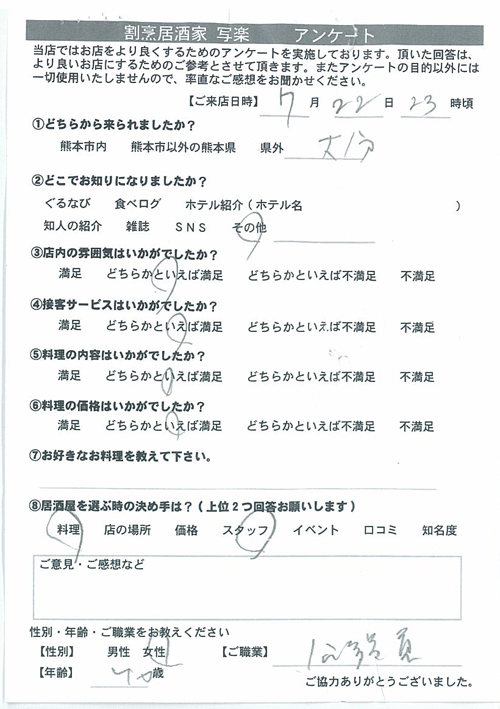 割烹居酒家 写楽 アンケート
当店ではお店をより良くするためのアンケートを実施しております。頂いた回答は、
より良いお店にするためのご参考とさせて頂きます。またアンケートの目的以外には
一切使用いたしませんので、率直なご感想をお聞かせください。
【ご来店日時】 7 月 22 日 23 時頃
①どちらから来られましたか？
熊本市内 熊本市以外の熊本県 県外 大分
②どこでお知りになりましたか？
ぐるなび 食べログ ホテル紹介（ホテル名 ）
知人の紹介 雑誌 ＳＮＳ その他
③店内の雰囲気はいかがでしたか？
満足 どちらかといえば満足 どちらかといえば不満足 不満足
④接客サービスはいかがでしたか？
満足 どちらかといえば満足 どちらかといえば不満足 不満足
⑤料理の内容はいかがでしたか？
満足 どちらかといえば満足 どちらかといえば不満足 不満足
⑥料理の価格はいかがでしたか？
満足 どちらかといえば満足 どちらかといえば不満足 不満足
⑦お好きなお料理を教えて下さい。
⑧居酒屋を選ぶ時の決め手は？（上位２つ回答お願いします）
料理 店の場所 価格 スタッフ イベント 口コミ 知名度
ご意見・ご感想など
性別・年齢・ご職業をお教えください
【性別】 男性 女性 【ご職業】
【年齢】 歳
ご協力ありがとうございました。